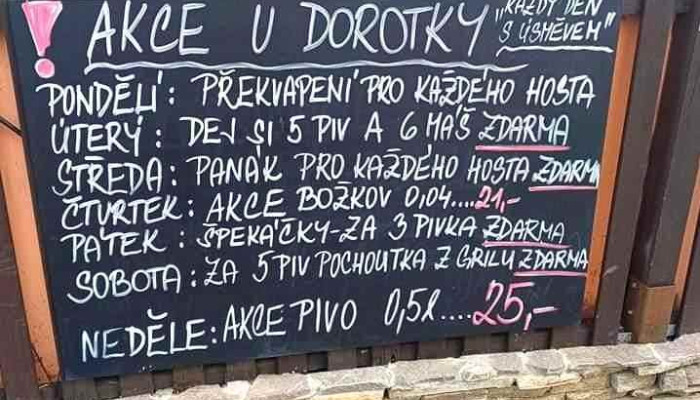 ! AKCE U DOROTKY „KAŽDÝ DEN
S ÚSMĚVEM"
PONDĚLÍ: PŘEKVAPENÍ PRO KAŽDÉHO HOSTA
ÚTERÝ: DEJ SI 5 PIV A 6 MÁŠ ZDARMA
STŘEDA: PANÁK PRO KAŽDÉHO HOSTA ZDARMA
ČTVRTEK: AKCE BOŽKOV 0,04....21,-
PÁTEK: ŠPEKÁČKY-ZA 3 PIVKA ZDARMA
SOBOTA: ZA 5 PIV POCHOUTKA Z GRILU ZDARMA
NEDĚLE: AKCE PIVO 0,5l....25,-